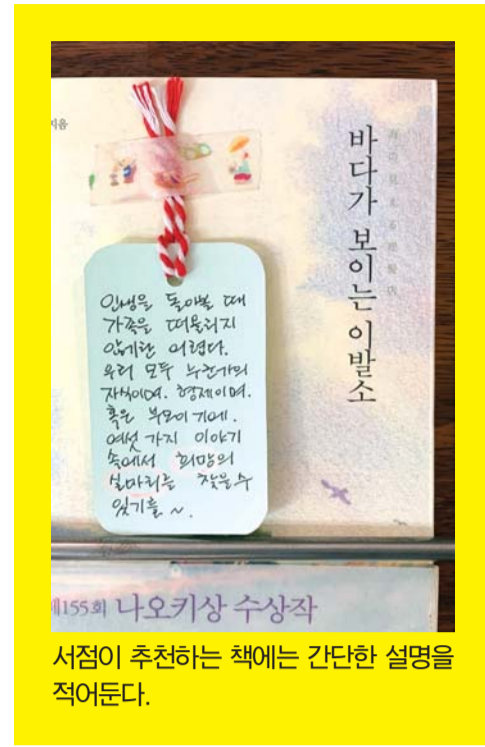 지음
바다가 보이는 이발소
海の見える理髪店
인생을 돌아볼 때
가족을 떠올리지
않기란 어렵다.
우리 모두 누군가의
자식이며. 형제이며.
혹은 부모이기에.
여섯 가지 이야기
속에서 희망의
실마리를 찾을 수
있기를 ~.
제155회 나오키상 수상작
서점이 추천하는 책에는 간단한 설명을
적어둔다.